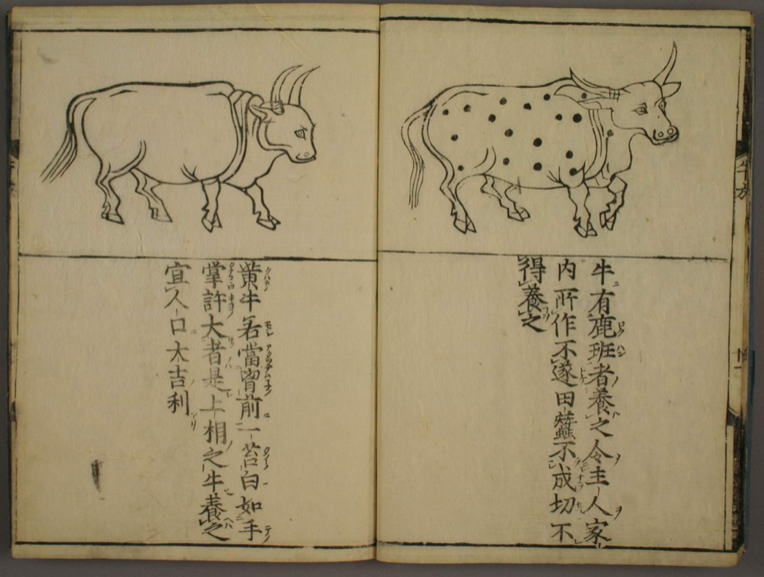 牛有鹿班者養之令主人家
内所作不遂田蚕不成切不
得養之
黄牛若當胷前一苔白如手
掌許大者是上相之牛養之
宜人口大吉利